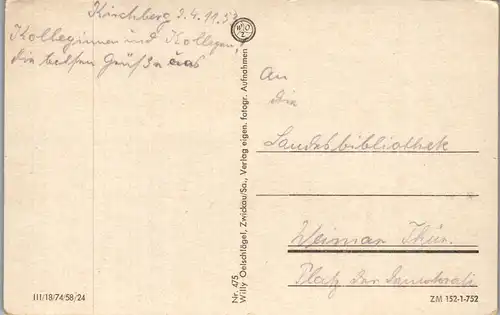 Kirchberg 3.4.1953
Kolleginnen und Kollegen,
die besten Grüße aus
An
die
Landesbibliothek
Weimar Thür.
Platz der Demokratie
Nr. 475
Willy Oelschlägel, Zwickau/Sa., Verlag eigen. fotogr. Aufnahmen
III/18/74/58/24
ZM 152-1-752